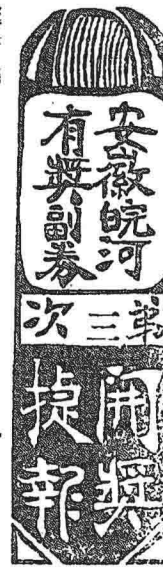 安徽皖河
有奬副券
第三次
開奬
捷報